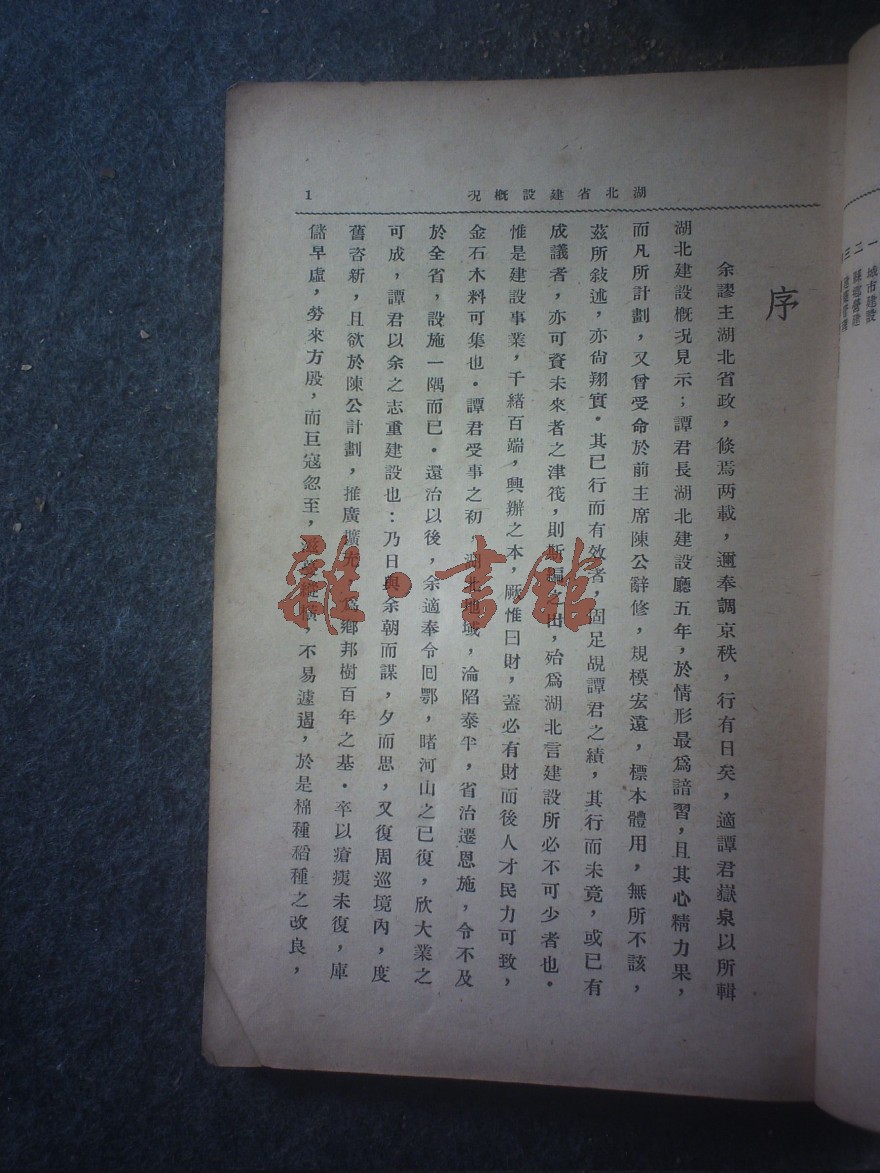 湖北省建設概況
1
序
余謬主湖北省政，倏焉两載，邇奉調京秩，行有日矣，適譚君嶽泉以所輯
湖北建設概況見示；譚君長湖北建設廳五年，於情形最爲諳習，且其心精力果，
而凡所計劃，又曾受命於前主席陳公辭修，規模宏遠，標本體用，無所不該，
茲所敘述，亦尙翔實。其已行而有效者，固足覘譚君之績，其行而未竟，或已有
成議者，亦可資未來者之津筏，則斯編之出，殆爲湖北言建設所必不可少者也。
惟是建設事業，千緒百端，興辦之本，厥惟曰財，蓋必有財而後人才民力可致，
金石木料可集也。譚君受事之初，湖北地域，淪陷泰半，省治遷恩施，令不及
於全省，設施一隅而已。還治以後，余適奉令囘鄂，睹河山之已復，欣大業之
可成，譚君以余之志重建設也：乃日與余朝而謀，夕而思，又復周巡境內，度
舊咨新，且欲於陳公計劃，推廣擴充，爲鄉邦樹百年之基。卒以瘡痍未復，庫
儲早虛，勞來方殷，而巨寇忽至，橫，不易遽遏，於是棉種稻種之改良，
一 城市建設
二
三
雜·書館